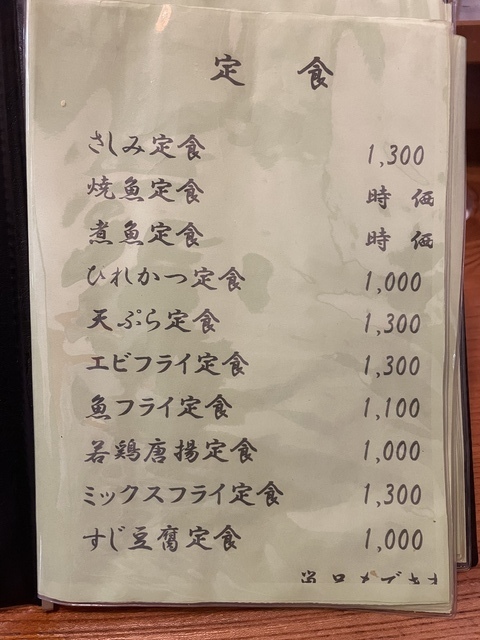 定食
さしみ定食 1,300
焼魚定食 時価
煮魚定食 時価
ひれかつ定食 1,000
天ぷら定食 1,300
エビフライ定食 1,300
魚フライ定食 1,100
若鶏唐揚定食 1,000
ミックスフライ定食 1,300
すじ豆腐定食 1,000